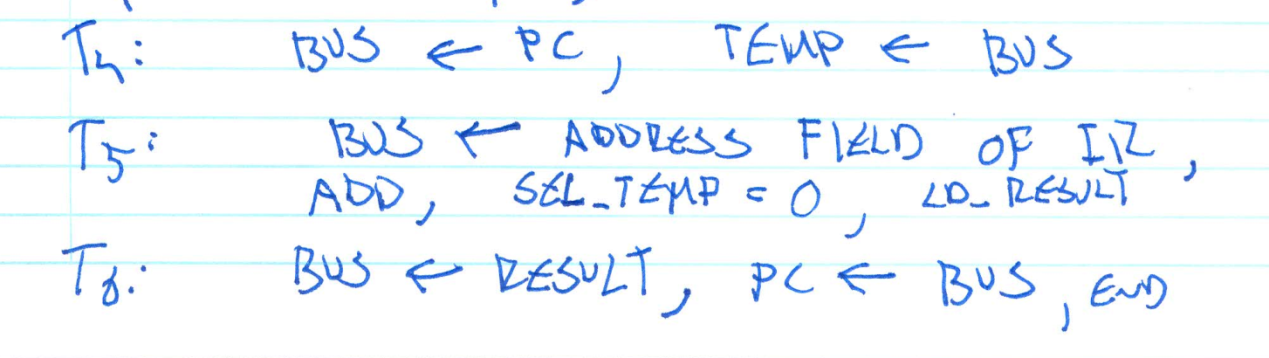 T4: BUS ← PC, TEMP ← BUS
T5: BUS ← ADDRESS FIELD OF IR,
ADD, SEL_TEMP = 0, LD_RESULT
T6: BUS ← RESULT, PC ← BUS, END